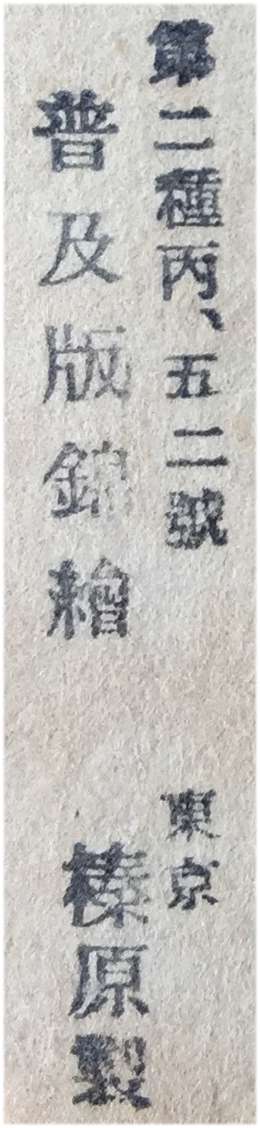 第二種丙、五二號
普及版錦繪
東京
榛原製